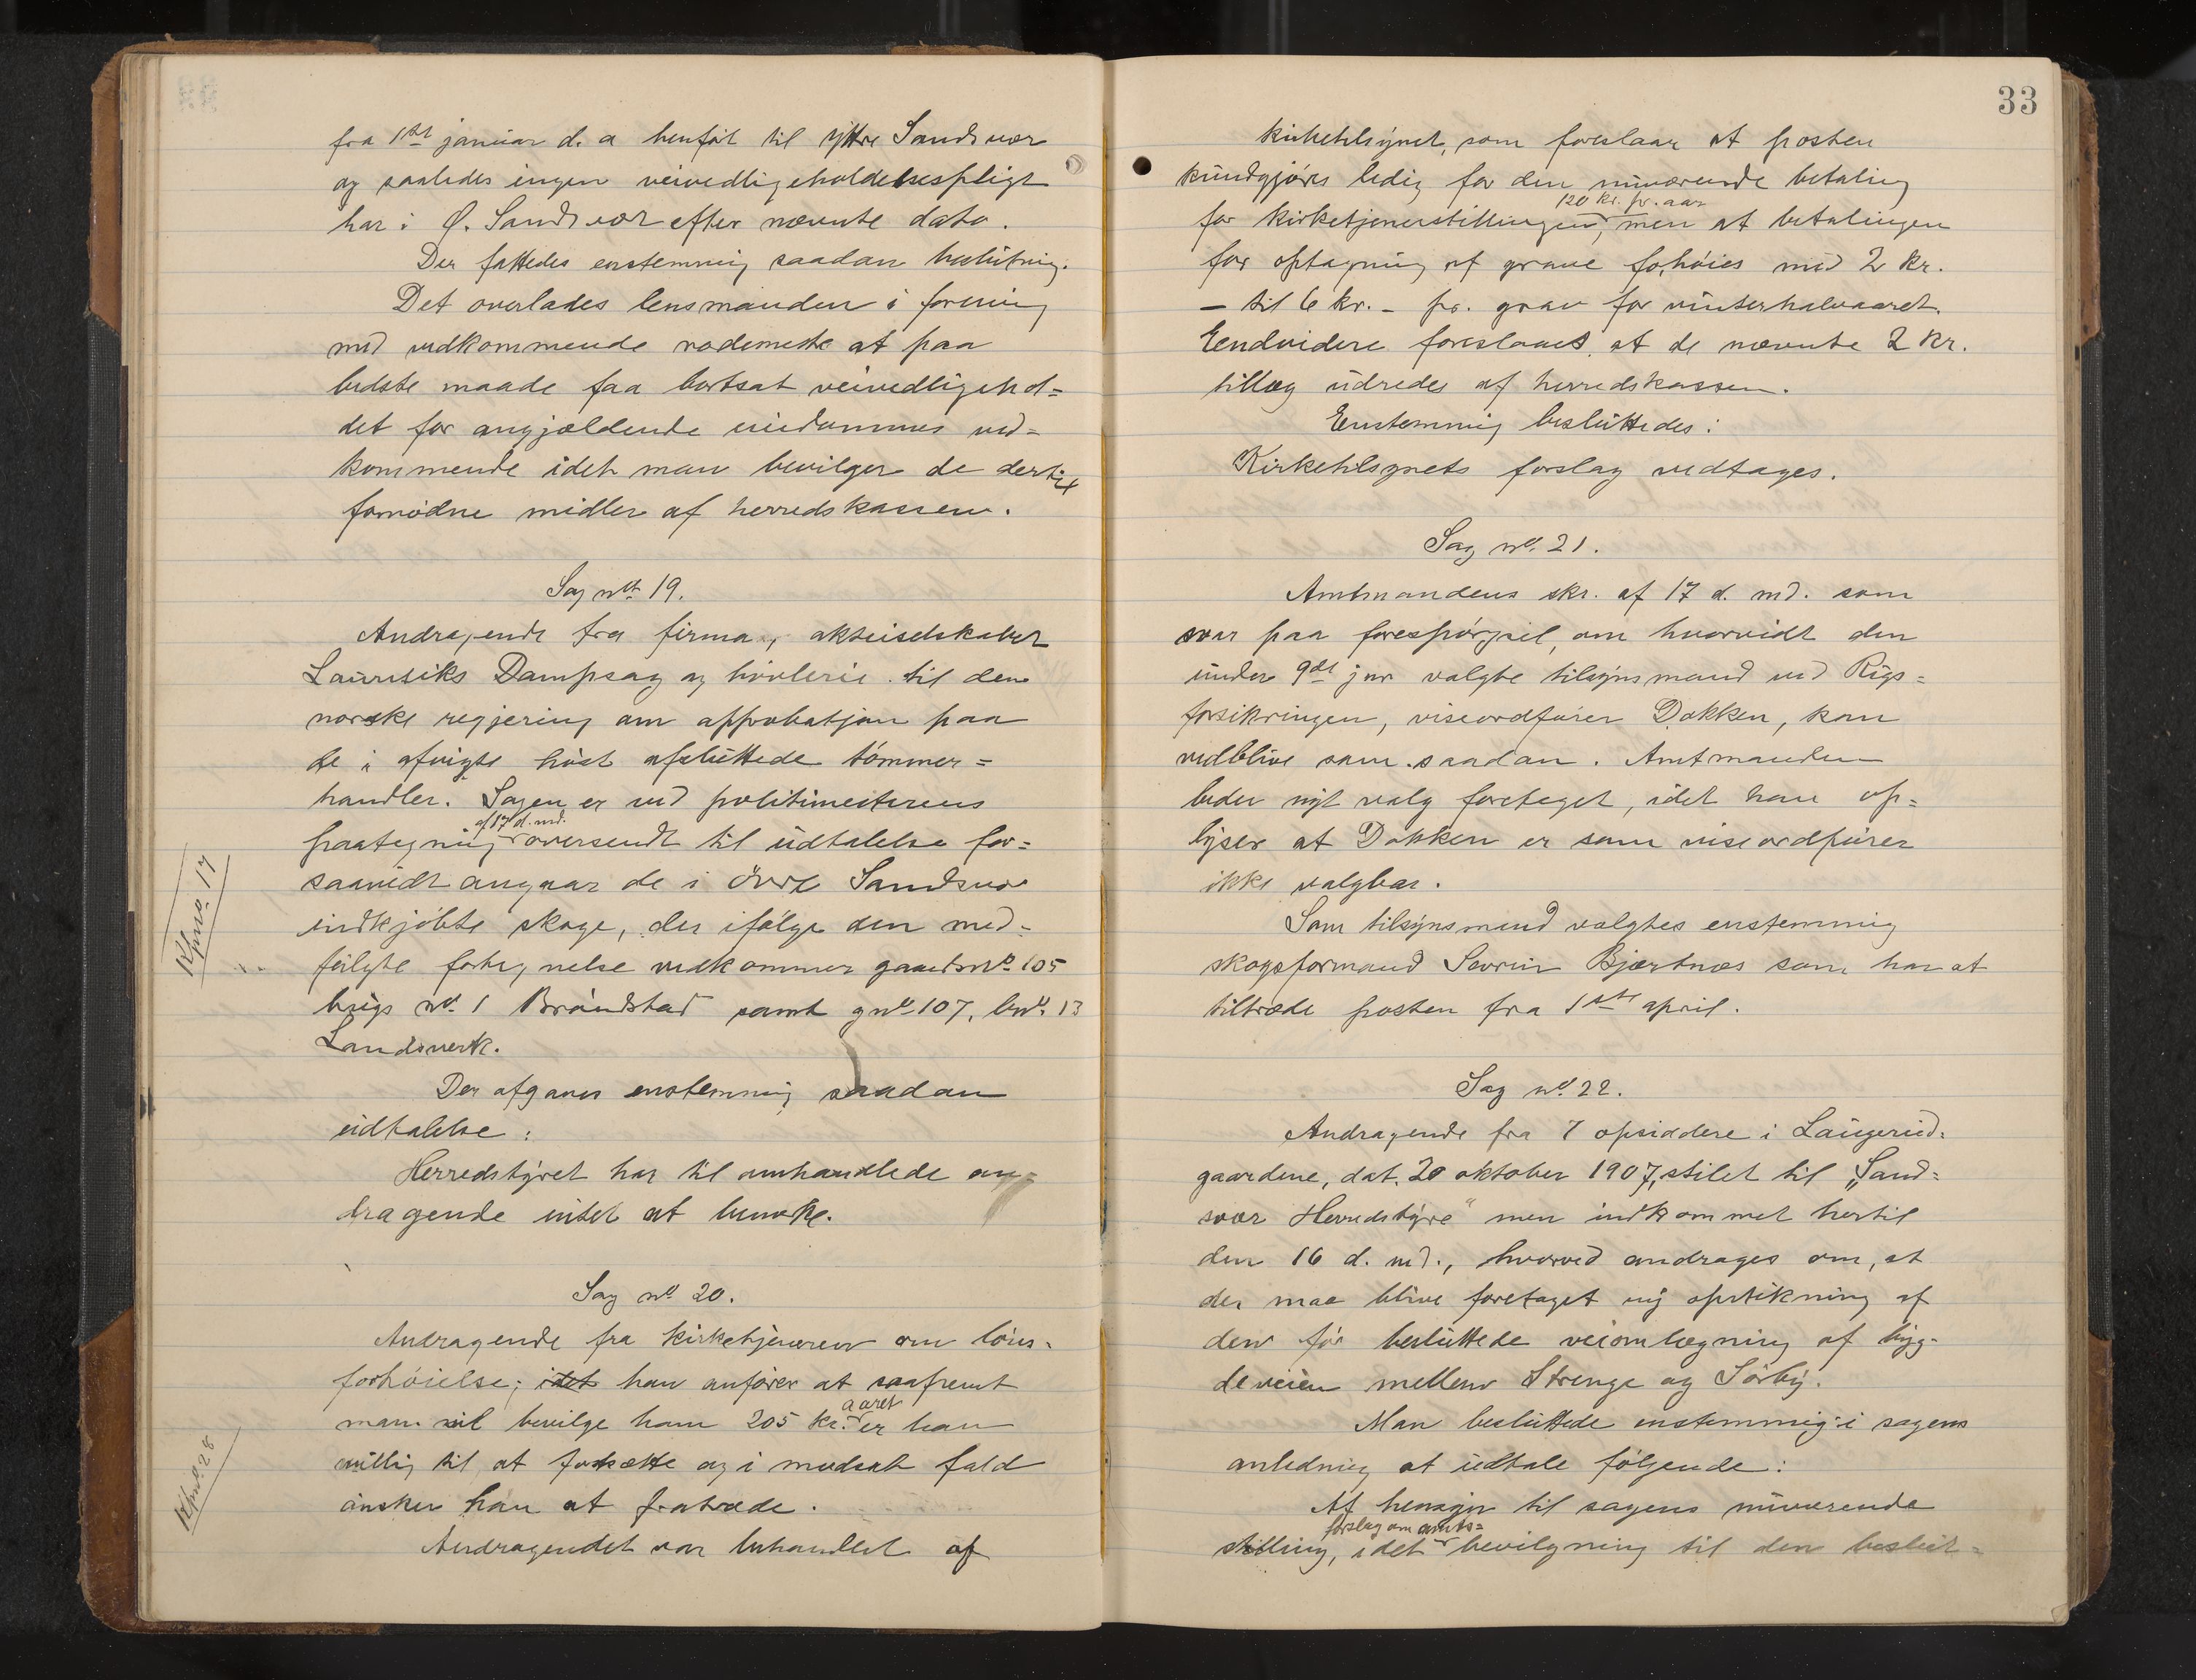 fra 1ste januar d. a henført til Ytre Sandsvær
og saaledes ingen veivedligeholdelsespligt
har i Ø. Sandsvær efter nævnte dato.
Der fattedes enstemmig saadan beslutning.
Det overlades lensmanden i forening
med vedkommende rodemestre at paa
bedste maade faa bortsat veivedligehol=
det for angjældende eiendommes ved=
kommende idet man bevilger de dertil
fornødne midler af herredskassen.
Sag no. 19.
Andragende fra firma, aktieselskabet
Laurtsiks Dampsag og høvleri til den
norske regjering om approbatjon paa
de i afvigte høst afsluttede tømmer=
handler. Sagen er ved politimesterens
af 17 d. md.
paategning oversendt til udtalelse for=
saavidt angaar de i Øvre Sandsvær
Kfr. no. 17
indkjøbte skoge, der ifølge den med=
følgte fortegnelse vedkommer gaardsno. 105
brugs no. 1 Brøndstad samt gno. 107, bno. 13
Landsverk.
Der afgaves enstemmig saadan
udtalelse:
Herredstyret har til omhandlede an=
dragende intet at bemærke.
Sag no. 20.
Andragende fra kirketjeneren om løns=
forhøielse; idet han anfører at saafremt
aaret
man vil bevilge ham 205 kr. er han
Kfr. no. 28
villig til at fortsætte og i modsat fald
ønsker han at fratræde.
Andragendet var behandlet af
33
kirketilsynet, som foreslaar at posten
kundgjøres ledig for den nuværende betaling
120 kr. pr. aar
for kirketjenerstillingen, men at betalingen
for optagning af grave forhøies med 2 kr.
– til 6 kr. – pr. grav for vinterhalvaaret.
Eendvidere foreslaaes at de nævnte 2 kr.
tillæg udredes af herredskassen.
Enstemmig besluttedes:
Kirketilsynets forslag vedtages.
Sag no. 21.
Amtmandens skr. af 17 d. md. som
svar paa forespørgsel, om hvorvidt den
under 9de jan valgte tilsynsmand ved Rigs=
forsikringen, viseordfører Dokken, kan
vedblive som saadan. Amtmanden
beder nyt valg foretaget, idet han op=
lyser at Dokken er som viseordfører
ikke valgbar.
Som tilsynsmand valgtes enstemmig
skogsformand Sevrin Bjærtnæs som har at
tiltræde posten fra 1ste april.
Sag no. 22.
Andragende fra 7 opsiddere i Laugerud=
gaardene, dat. 20 oktober 1907, stilet til „Sand=
svær Herredstyre" men indkommet hertil
den 16 d. md., hvorved andrages om, at
der maa blive foretaget ny opstikning af
den før besluttede veiomlægning af byg=
deveien mellem Strenge og Sørby.
Man besluttede enstemmig i sagens
anledning at udtale følgende:
Af hensyn til sagens nuværende
forslag om amts=
stilling, idet bevilgning til den beslut=